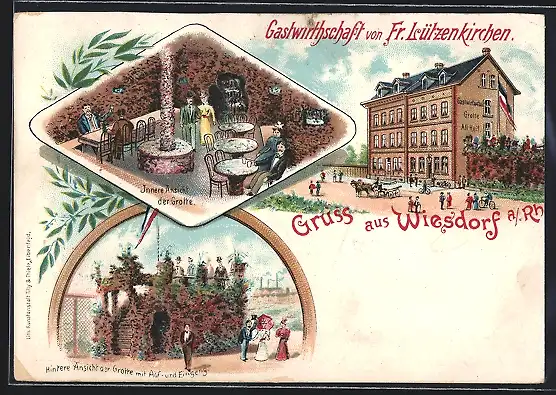 Gastwirthschaft von Fr. Lützenkirchen.
Gastwirthschaft
Grotte
Innere Ansicht
der Grotte.
Gruss aus Wiesdorf a/. Rh
Hintere Ansicht der Grotte mit Auf- und Eingang